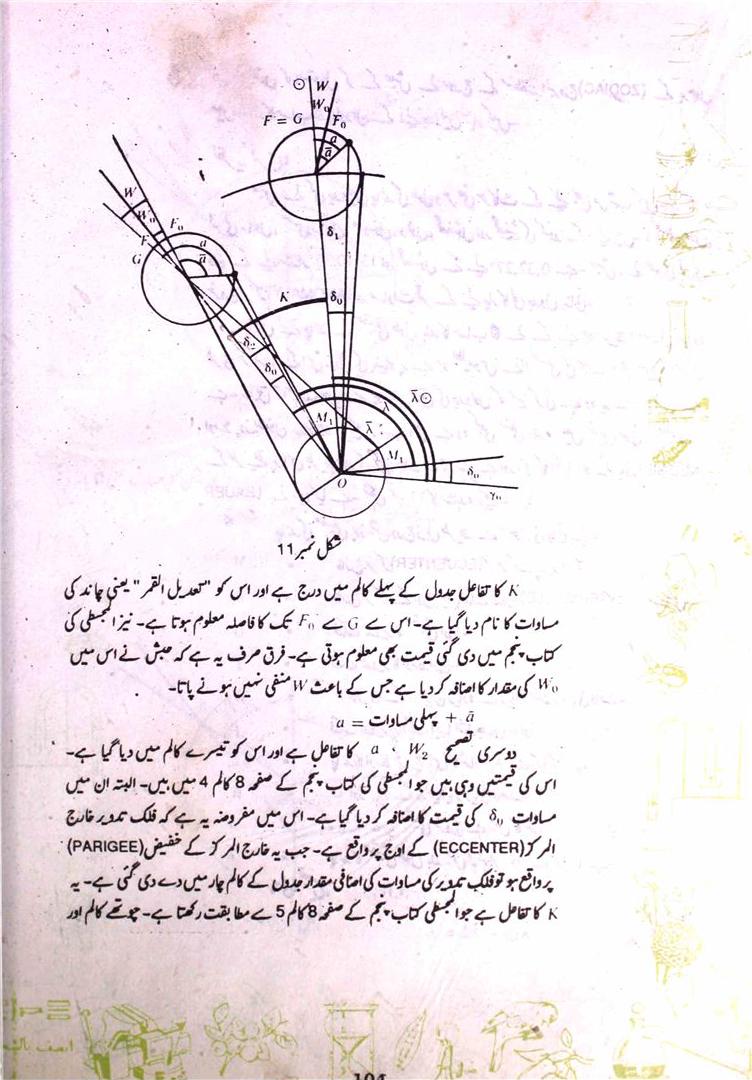 ⊙ W
W₀
F = G F₀
a
ā
δ₁
W
W₀
F F₀
G a
ā
K δ₀
δ₂
δ₀
λ λ̄⊙
M₁ λ̄
M₁
δ₀
O
γ₀
شکل نمبر 11
K کا تفاعل جدول کے پہلے کالم میں درج ہے اور اس کو "تعدیل القمر" یعنی چاند کی
مساوات کا نام دیا گیا ہے۔ اس سے G سے F₀ تک کا فاصلہ معلوم ہوتا ہے۔ نیز المجسطی کی
کتاب پنجم میں دی گئی قیمت بھی معلوم ہوتی ہے۔ فرق صرف یہ ہے کہ حبش نے اس میں
W₀ کی مقدار کا اضافہ کر دیا ہے جس کے باعث W منفی نہیں ہونے پاتا۔
a = پہلی مساوات + ā
دوسری تصحیح W₂ ، a کا تفاعل ہے اور اس کو تیسرے کالم میں دیا گیا ہے۔
اس کی قیمتیں وہی ہیں جو المجسطی کی کتاب پنجم کے صفحہ 8 کالم 4 میں ہیں۔ البتہ ان میں
مساوات δ₀ کی قیمت کا اضافہ کر دیا گیا ہے۔ اس میں مفروضہ یہ ہے کہ فلک تدویر خارج
المرکز (ECCENTER) کے اوج پر واقع ہے۔ جب یہ خارج المرکز کے حضیض (PARIGEE)
پر واقع ہو تو فلک تدویر کی مساوات کی اضافی مقدار جدول کے کالم چار میں دے دی گئی ہے۔ یہ
K کا تفاعل ہے جو المجسطی کتاب پنجم کے صفحہ 8 کالم 5 سے مطابقت رکھتا ہے۔ چوتھے کالم اور
104